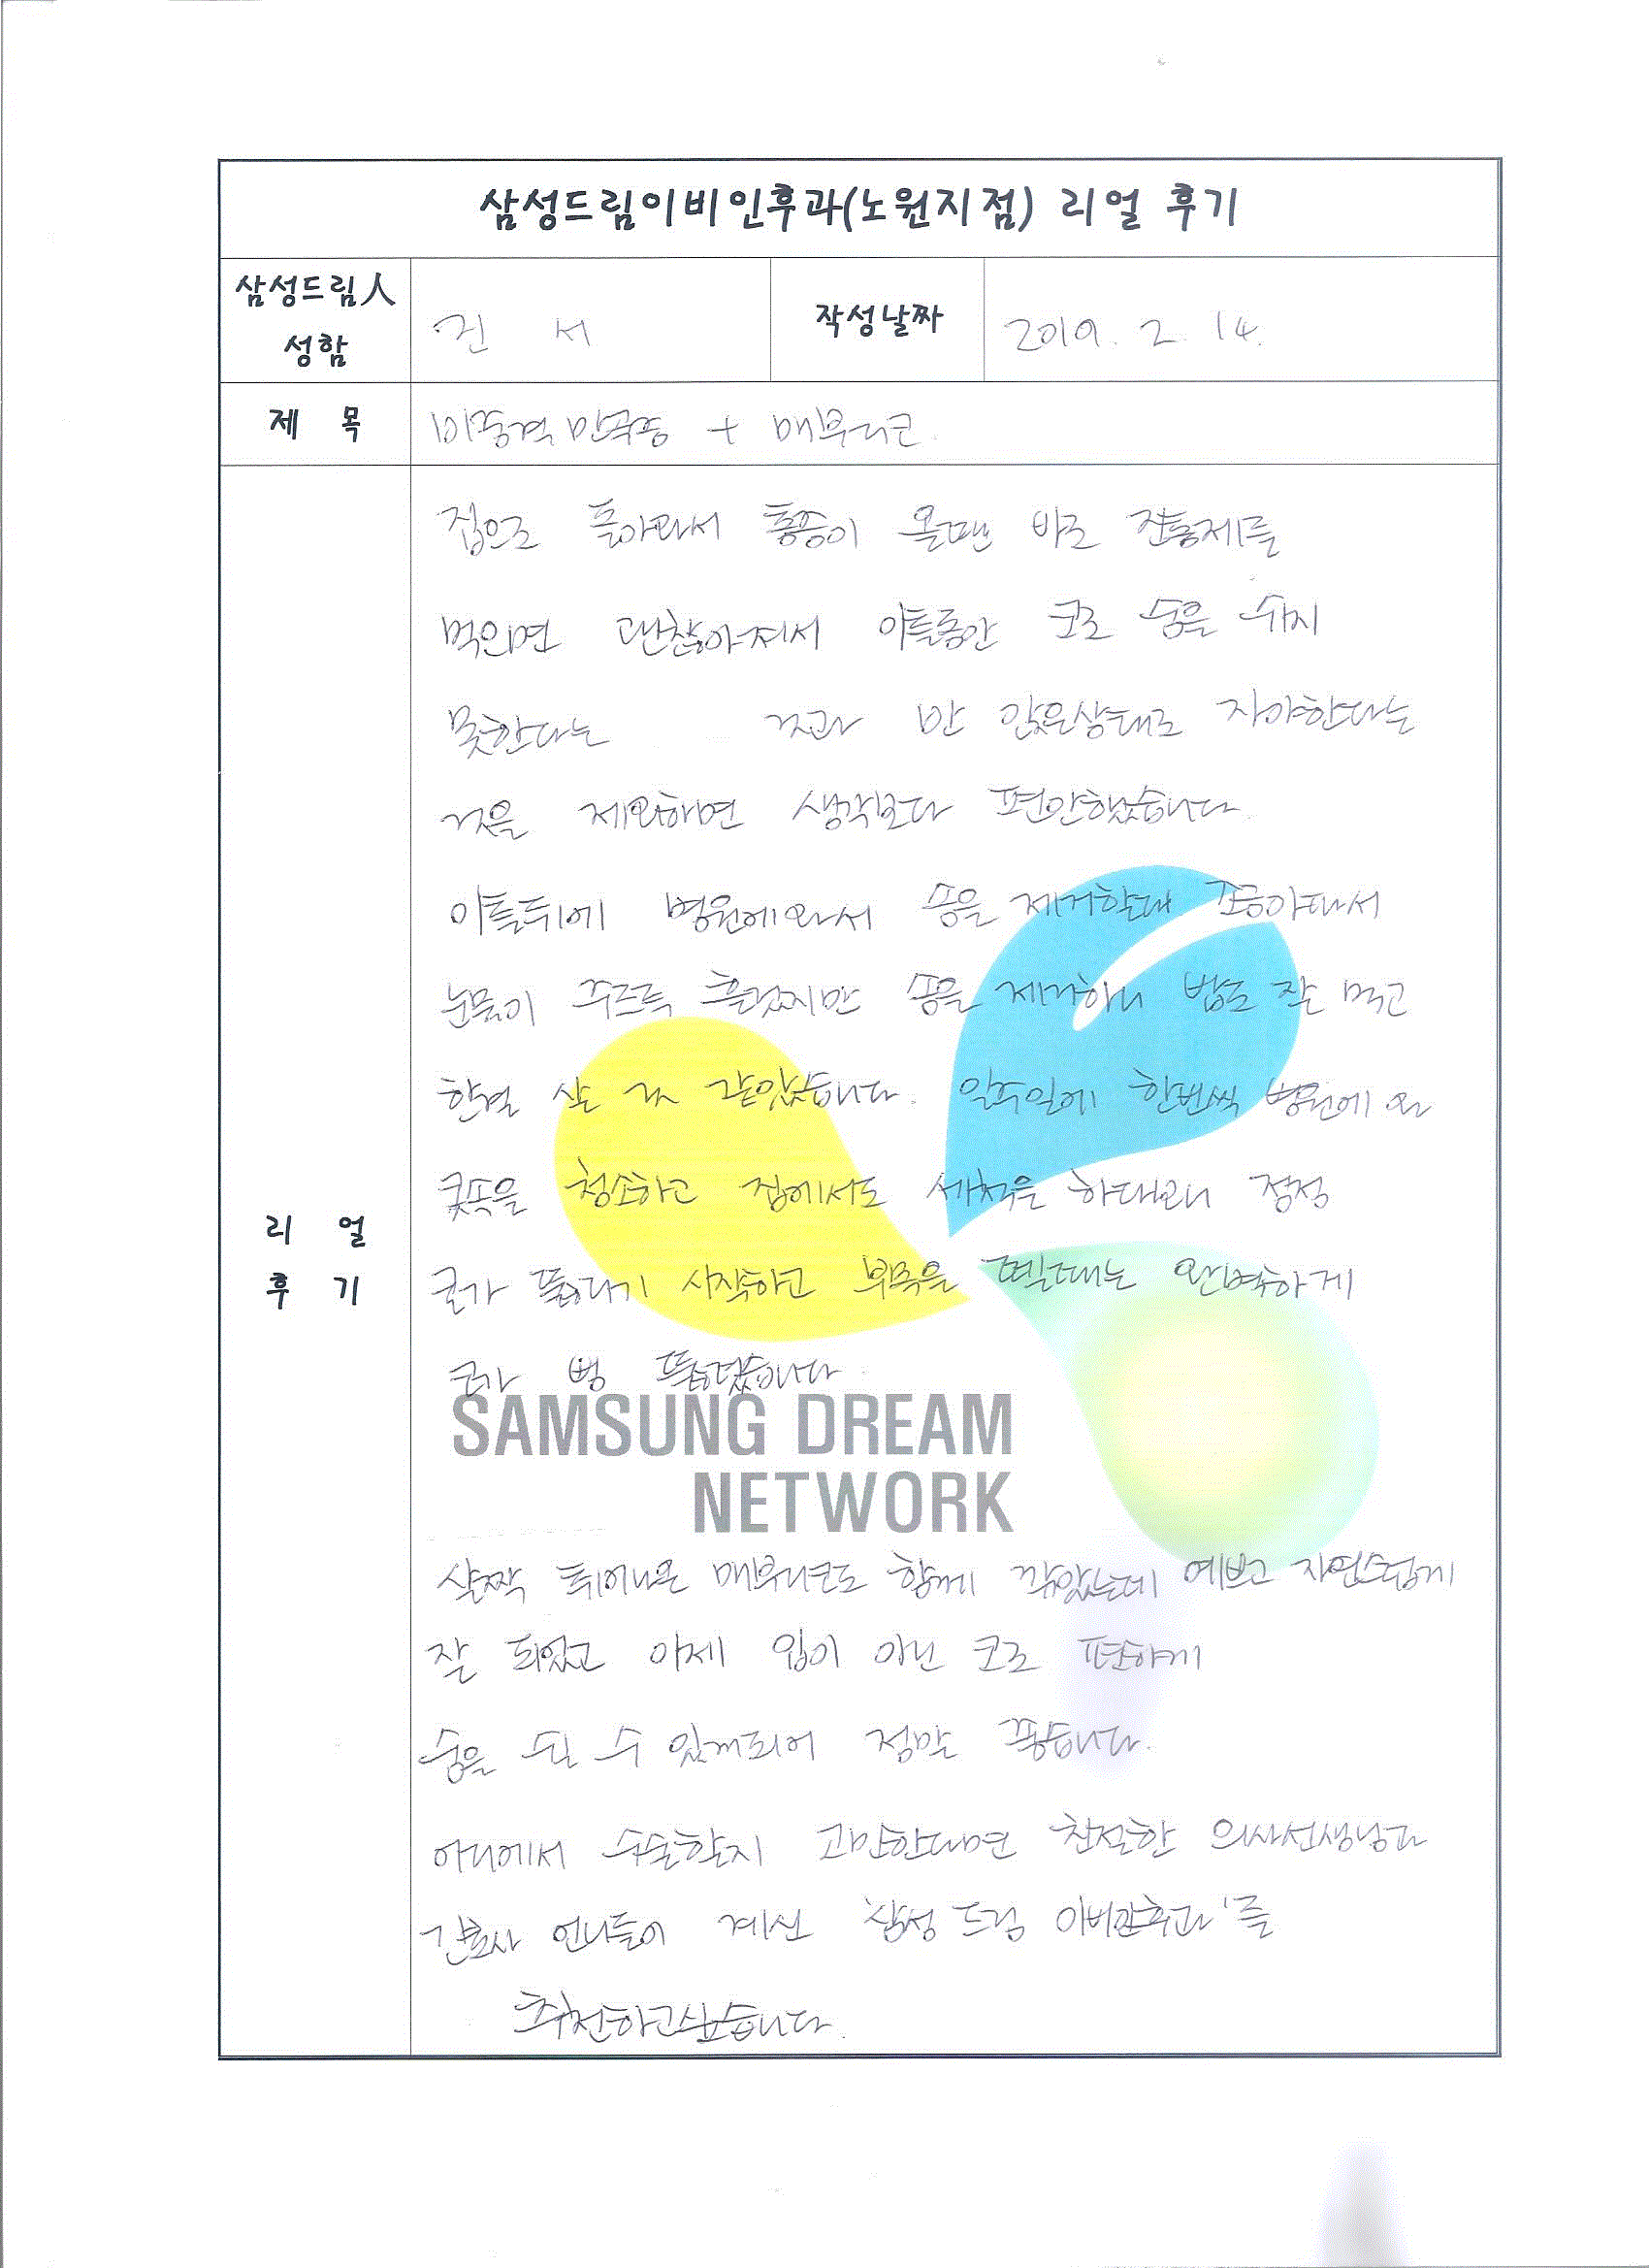 삼성드림이비인후과(노원지점) 리얼 후기
삼성드림人 성함
진 서
작성날짜
2019. 2. 14.
제 목
비중격 만곡증 + 매부리코.
리 얼 후 기
집으로 돌아와서 통증이 올땐 바로 진통제를
먹으면 괜찮아져서 이틀동안 코로 숨을 쉬지
못한다는 것과 반 앉은상태로 자야한다는
것을 제외하면 생각보다 편안했습니다.
이틀뒤에 병원에와서 솜을 제거할때 조금아파서
눈물이 주르륵 흘렀지만 솜을 제거하니 밥도 잘 먹고
한결 산 것 같았습니다. 일주일에 한번씩 병원에 와
콧속을 청소하고 집에서도 세척을 하다보니 점점
코가 뚫리기 시작하고 부목을 뗄때는 완벽하게
코가 뻥 뚫렸습니다.
SAMSUNG DREAM
NETWORK
살짝 튀어나온 매부리코도 함께 깎았는데 예쁘고 자연스럽게
잘 되었고 이제 입이 아닌 코로 편하게
숨을 쉴 수 있게되어 정말 좋습니다.
어디에서 수술할지 고민한다면 친절한 의사선생님과
간호사 언니들이 계신 '삼성 드림 이비인후과'를
추천하고싶습니다.